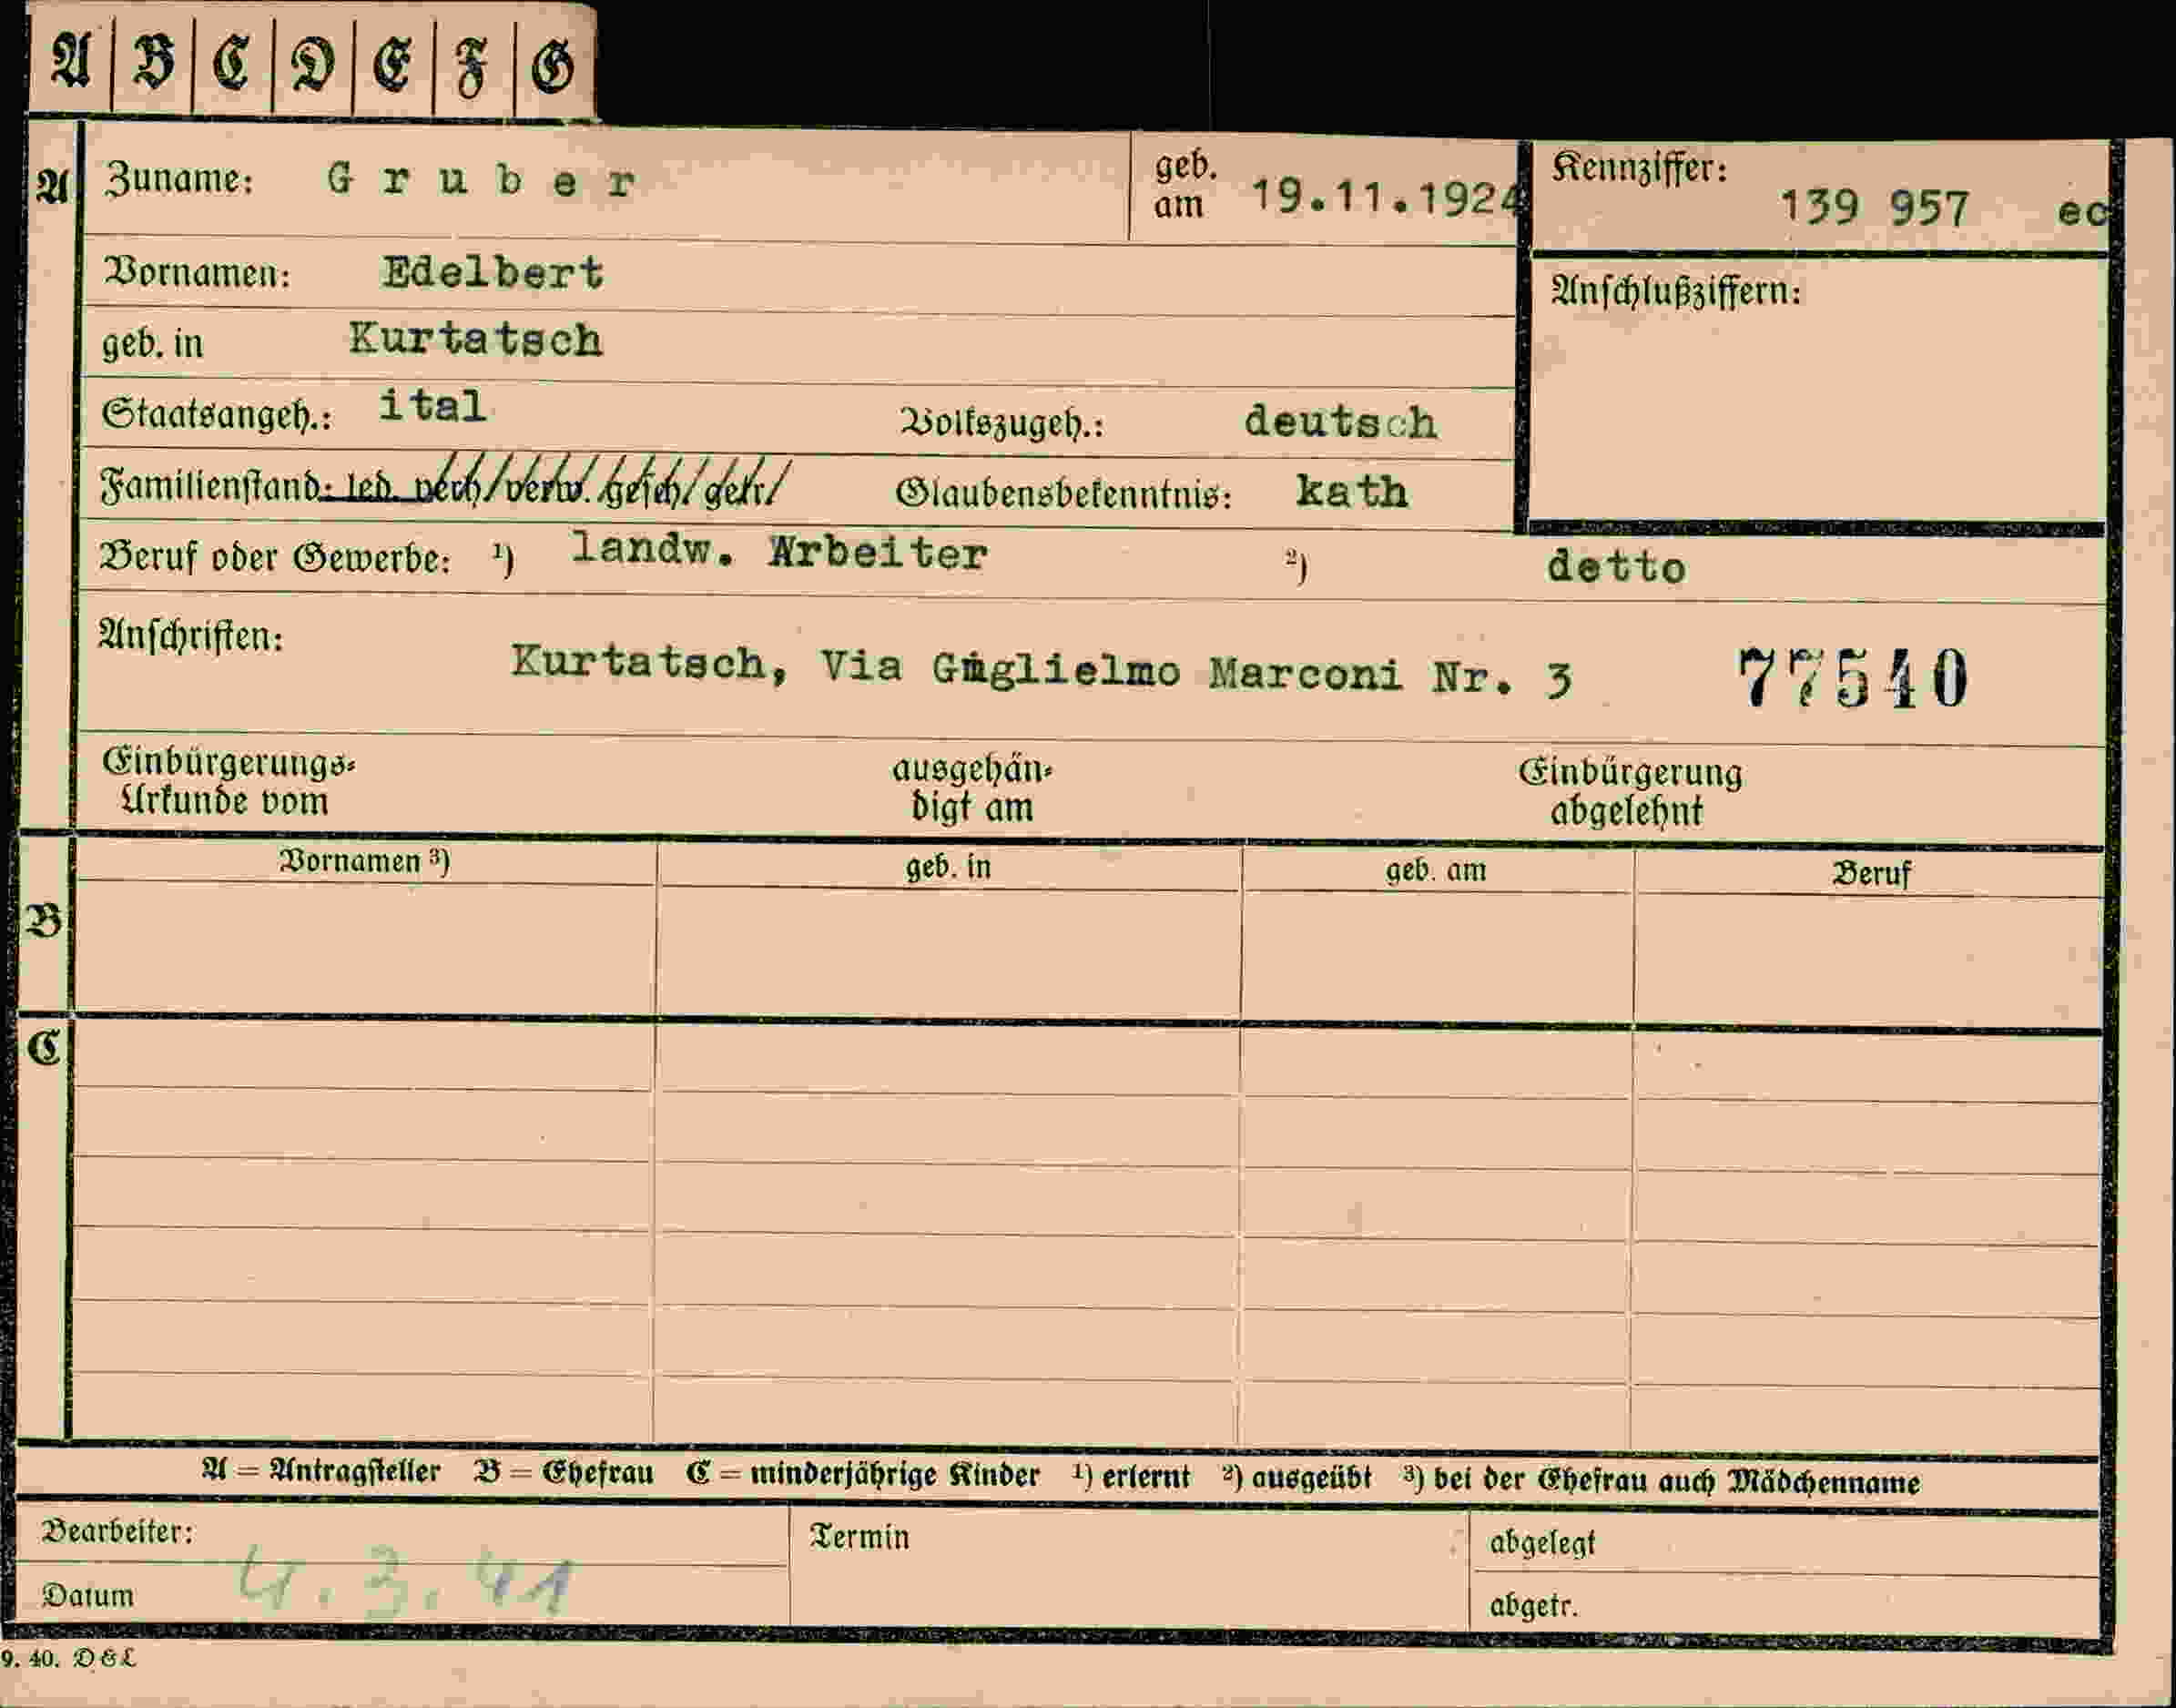 A B C D E F G
A Zuname: Gruber geb. am 19.11.1924 Kennziffer: 139 957 ec
Vornamen: Edelbert Anschlußziffern:
geb. in Kurtatsch
Staatsangeh.: ital Volkszugeh.: deutsch
Familienstand: led. verh. verw. gesch. getr. Glaubensbekenntnis: kath
Beruf oder Gewerbe: ¹) landw. Arbeiter ²) detto
Anschriften: Kurtatsch, Via Guglielmo Marconi Nr. 3 77540
Einbürgerungs-Urkunde vom ausgehändigt am Einbürgerung abgelehnt
Vornamen ³) geb. in geb. am Beruf
B
C
A = Antragsteller B = Ehefrau C = minderjährige Kinder ¹) erlernt ²) ausgeübt ³) bei der Ehefrau auch Mädchenname
Bearbeiter: Termin abgelegt
Datum 4.3.41 abgetr.
9. 40. D&L